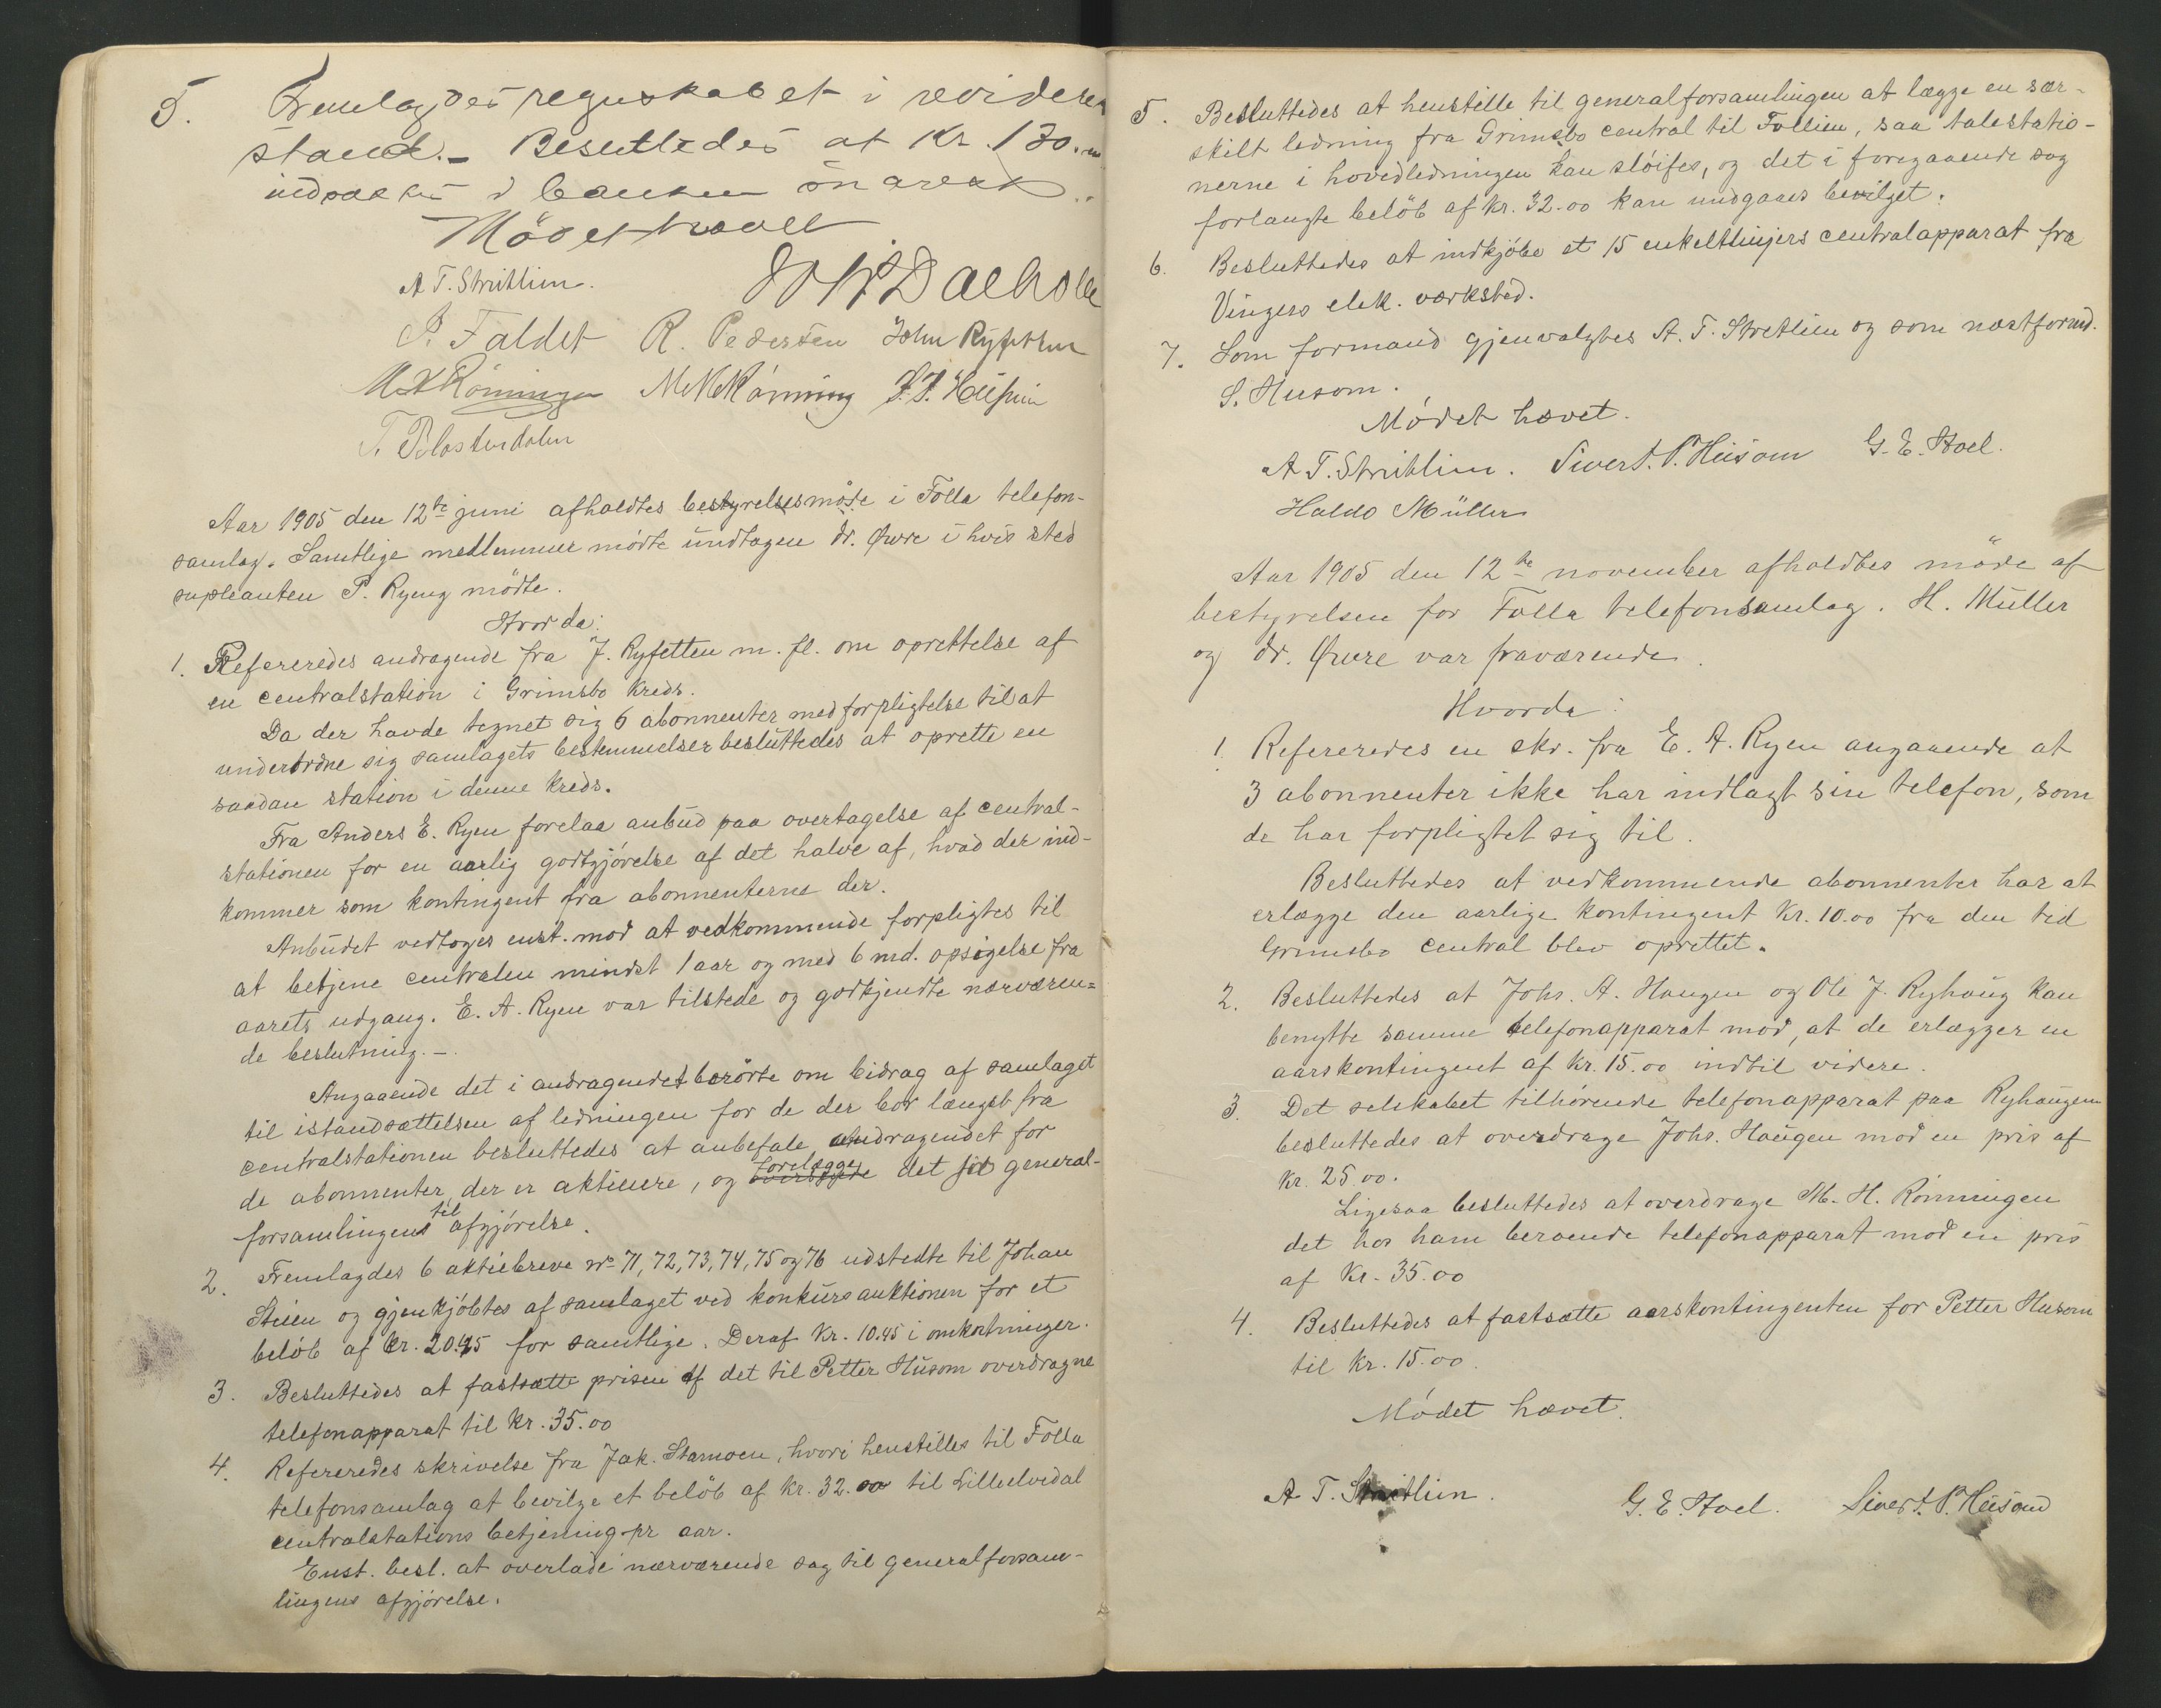 5. Fremlagdes regnskabet i revideret
stand. – Beslutledes at Kr. 130.
indsættes i banken
Mödet hævet
A T. Stritlien.
P. Faldet R. Pedersen John Ryfetten
M H Rönningen M M Rönning J. J. Husum
Aar 1905 den 12te juni afholdtes bestyrelsesmöde i Folla telefon-
samlag. Samtlige medlemmer mödte undtagen dr. Øvre i hvis sted
supleanten P. Ryeng mödte.
Hvor da:
1. Refereredes andragende fra J. Ryfetten m. fl. om oprettelse af
en centralstation i Grimsbo kreds.
Da der havde tegnet sig 6 abonnenter med forpligtelse til at
underordne sig samlagets bestemmelser besluttedes at oprette en
saadan station i denne kreds.
Fra Anders E. Ryen forelaa anbud paa overtagelse af central-
stationen for en aarlig godtgjörelse af det halve af, hvad der ind-
kommer som kontingent fra abonnenterne der.
Anbudet vedtoges enst. mod at vedkommende forpligtes til
at betjene centralen mindst 1 aar og med 6 md. opsigelse fra
aarets udgang. E. A. Ryen var tilstede og godkjendte nærværen=
de beslutning. –.
Angaaende det i andragendet berörte om bidrag af samlaget
til istandsættelsen af ledningen for de der bor længst fra
centralstationen besluttedes at anbefale andragendet for
de abonnenter, der er aktieiere, og forelægge det general-
forsamlingens til afgjörelse.
2. Fremlagdes 6 aktiebreve No 71, 72, 73, 74, 75 og 76 udstedte til Johan
Steien og gjenkjöbtes af samlaget ved konkursauktionen for et
belöb af kr. 20.95 for samtlige. Deraf Kr. 10.45 i omkostninger.
3. Besluttedes at fastsætte prisen af det til Petter Husom overdragne
telefonapparat til Kr. 35.00
4. Refereredes skrivelse fra Jak. Starmoen, hvori henstilles til Folla
telefonsamlag at bevilge et belöb af kr. 32.00 til Lilleelvedal
centralstations betjening pr aar.
Enst. besl. at overlade nærværende sag til generalforsam-
lingens afgjörelse.
5. Besluttedes at henstille til generalforsamlingen at lægge en sær-
skilt ledning fra Grimsbo central til Follien, saa talestatio-
nerne i hovedledningen kan slöifes, og det i foregaaende sag
forlangte belöb af kr. 32.00 kan undgaaes bevilget.
6. Besluttedes at indkjöbe et 15 enkeltlinjers centralapparat fra
Vingers elek. værksted.
7. Som formand gjenvalgtes A. T. Stretlien og som næstformd.
S. Husom.
Mödet hævet.
A T. Stritlien. Sivert. P. Husom G. E. Hoel.
Haldo Müller
Aar 1905 den 12te november afholdtes möde af
bestyrelsen for Folla telefonsamlag. H. Müller
og dr. Øvre var fraværende.
Hvorda:
1. Refereredes en skr. fra E. A. Ryen angaaende at
3 abonnenter ikke har indlagt sin telefon, som
de har forpligtet sig til.
Besluttedes at vedkommende abonnenter har at
erlægge den aarlige kontingent Kr. 10.00 fra den tid
Grimsbo central blev oprettet.
2. Besluttedes at Johs. A. Haugen og Ole J. Ryhaug kan
benytte samme telefonapparat mod, at de erlægger en
aarskontingent af kr. 15.00 indtil videre.
3. Det selskabet tilhörende telefonapparat paa Ryhaugen
besluttedes at overdrage Johs. Haugen mod en pris af
kr. 25.00.
Ligesaa besluttedes at overdrage M. H. Rönningen
det hos ham beroende telefonapparat mod en pris
af Kr. 35.00
4. Besluttedes at fastsætte aarskontingenten for Petter Husom
til Kr. 15.00.
Mödet hævet.
A T. Stritlien. G. E. Hoel. Sivert. P. Husom